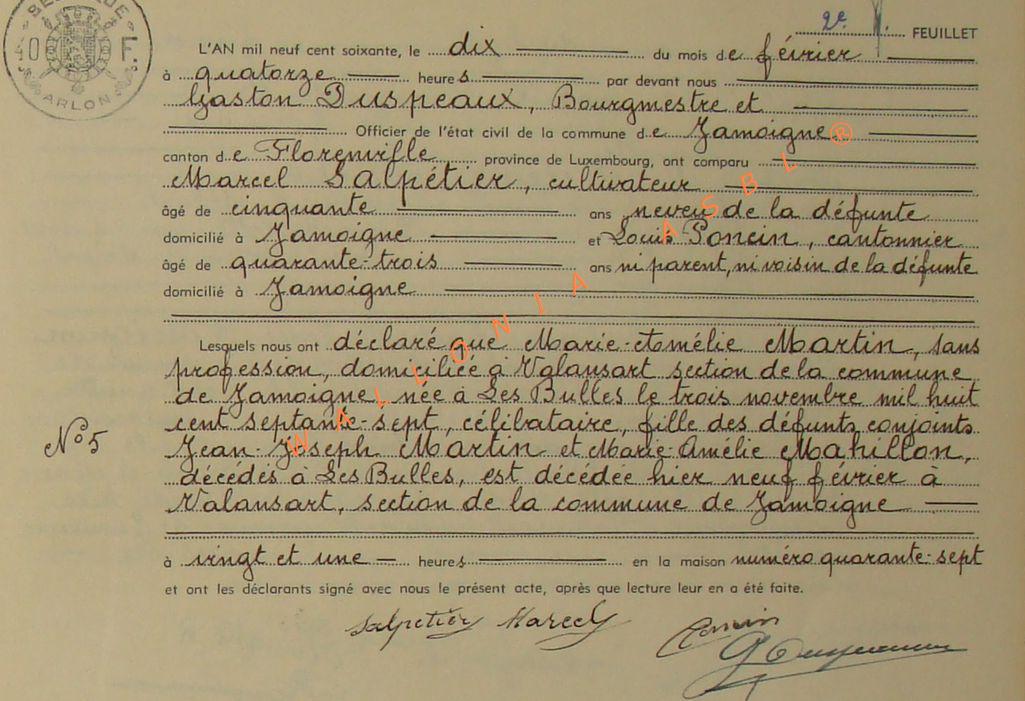 BELGIQUE
10 F.
ARLON
2e FEUILLET
L'AN mil neuf cent soixante, le dix du mois de février
à quatorze heures par devant nous
Gaston Duspeaux, Bourgmestre et
Officier de l'état civil de la commune de Jamoigne
canton de Florenville province de Luxembourg, ont comparu
Marcel Salpétier, cultivateur
âgé de cinquante ans neveu de la défunte
domicilié à Jamoigne et Louis Poncin, cantonnier
âgé de quarante-trois ans ni parent, ni voisin de la défunte
domicilié à Jamoigne
Lesquels nous ont déclaré que Marie-Amélie Martin, sans
profession, domiciliée à Valansart section de la commune
de Jamoigne, née à Les Bulles le trois novembre mil huit
cent septante-sept, célibataire, fille des défunts conjoints
Nº 5
Jean-Joseph Martin et Marie-Amélie Mahillon,
décédés à Les Bulles, est décédée hier neuf février à
Valansart, section de la commune de Jamoigne
à vingt et une heures en la maison numéro quarante-sept
et ont les déclarants signé avec nous le présent acte, après que lecture leur en a été faite.
Salpétier Marcel Poncin
G Duspeaux
WALLONIA ASBL ®